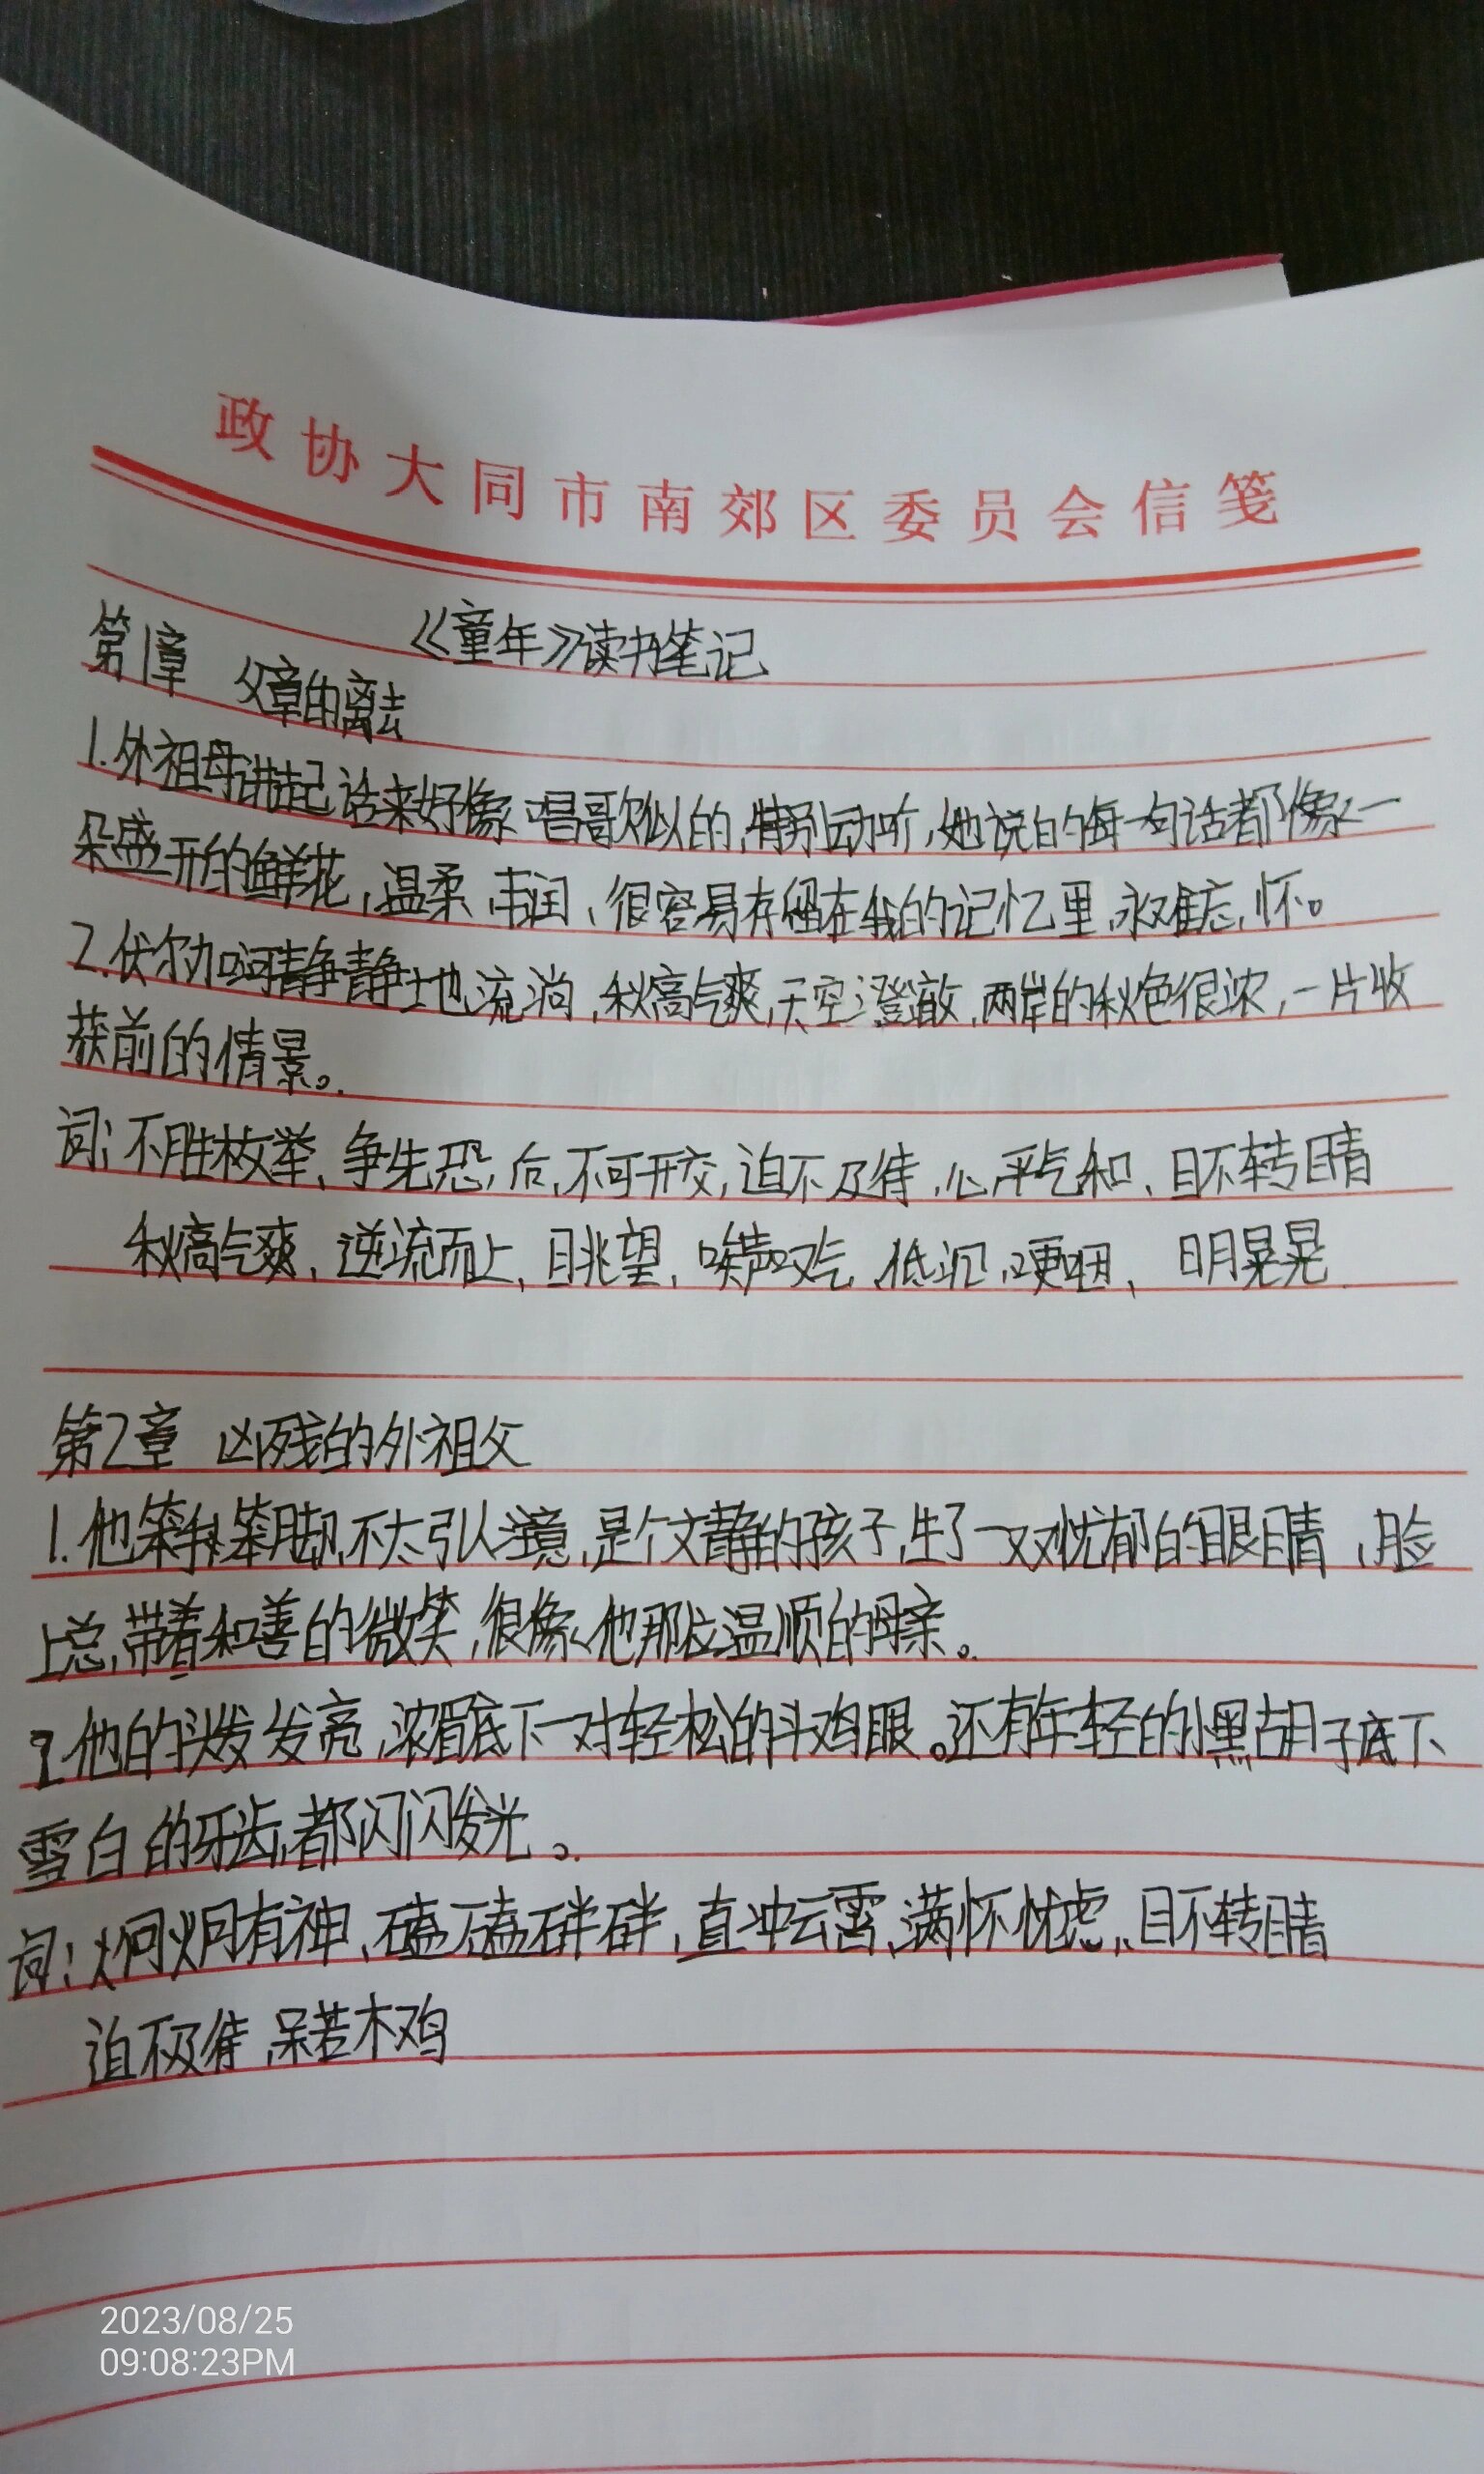 政协大同市南郊区委员会信笺
《童年》读书笔记
第1章 父章的离去
1.外祖母讲起话来好像唱歌似的,特别动听,她说的每一句话都像一
朵盛开的鲜花,温柔、丰润、很容易存留在我的记忆里,永难忘怀。
2.伏尔加河静静地流淌,秋高气爽,天空澄澈,两岸的秋色很浓,一片收
获前的情景。
词:不胜枚举、争先恐后,不可开交,迫不及待,心平气和、目不转睛
秋高气爽,逆流而上,眺望,唉声叹气,低沉,哽咽,明晃晃
第2章 凶残的外祖父
1.他笨手笨脚,不太引人注意,是个文静的孩子,生了一双忧郁的眼睛,脸
上总带着和善的微笑,很像他那位温顺的母亲。
2.他的头发发亮,浓眉底下一对轻松的斗鸡眼。还有年轻的小黑胡子底下
雪白的牙齿,都闪闪发光。
词:炯炯有神、磕磕碰碰,直冲云霄,满怀忧虑,目不转睛
迫不及待,呆若木鸡
2023/08/25
09:08:23PM